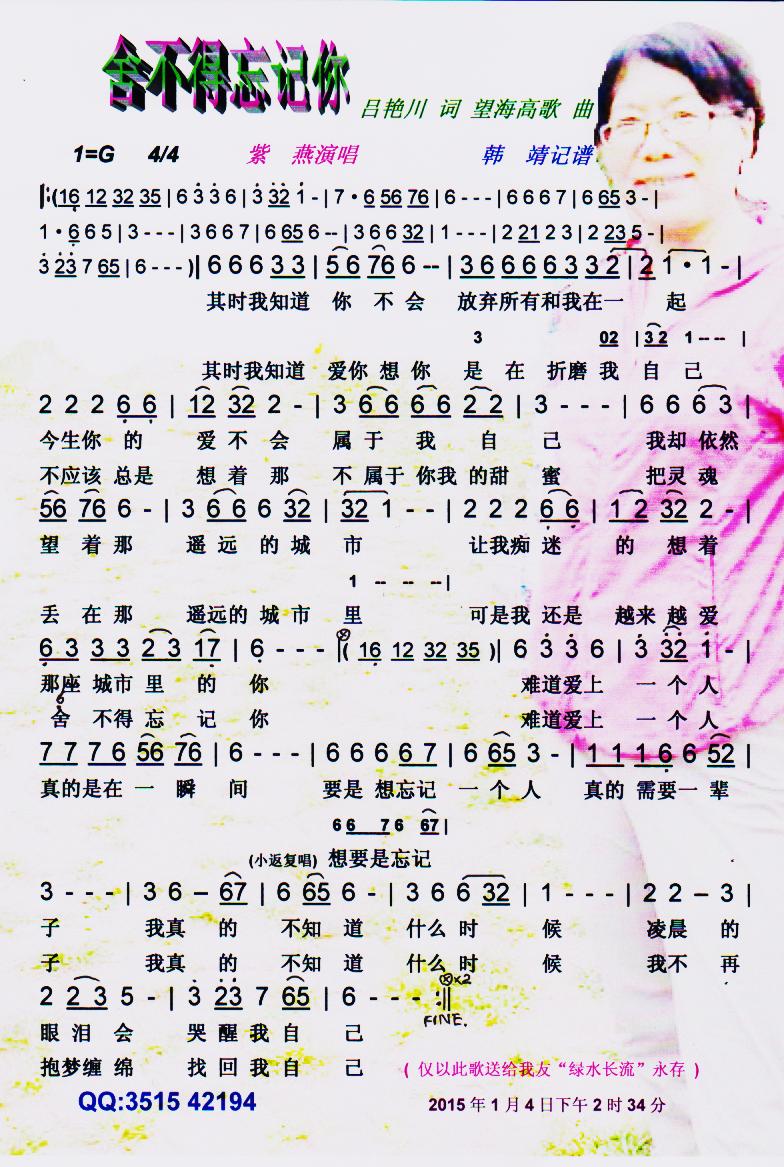 舍不得忘记你
吕艳川 词 望海高歌 曲
1=G 4/4 紫 燕演唱 韩 靖记谱
‖:(16 12 32 35 | 6 3 3 6 | 3 32 1 - | 7 · 6 56 76 | 6 - - - | 6 6 6 7 | 6 65 3 - |
1 · 6 6 5 | 3 - - - | 3 6 6 7 | 6 65 6 -- | 3 6 6 32 | 1 - - - | 2 21 2 3 | 2 23 5 - |
3 23 7 65 | 6 - - - )| 6 6 6 33 | 56 76 6 -- | 36 66 63 32 | 2 1 · 1 - |
其时我知道 你 不 会 放弃所有和我在一 起
3 02 | 32 1 -- -- |
其时我知道 爱你 想你 是 在 折磨 我 自 己
2 2 2 66 | 12 32 2 - | 3 66 66 22 | 3 - - - | 6 6 6 3 |
今生你 的 爱 不 会 属 于 我 自 己 我却 依然
不应该 总是 想 着 那 不 属于 你我 的甜 蜜 把灵 魂
56 76 6 - | 3 66 6 32 | 32 1 - - | 2 2 2 66 | 12 32 2 - |
望 着 那 遥 远 的 城 市 让我痴 迷 的 想 着
1 -- -- --|
丢 在 那 遥远的 城 市 里 可是我 还是 越来 越 爱
63 33 23 17 | 6 - - - |( 16 12 32 35 )| 6 3 3 6 | 3 32 1 - |
那座 城市 里 的 你 难道爱上 一 个 人
6
舍 不得 忘 记 你 难道爱上 一 个 人
77 76 56 76 | 6 - - - | 6 6 6 67 | 6 65 3 - | 11 16 6 52 |
真的 是在 一 瞬 间 要是 想忘记 一 个 人 真的 需要一 辈
66 76 67 |
(小返复唱) 想要是忘记
3 - - - | 3 6 – 67 | 6 65 6 - | 3 6 6 32 | 1 - - - | 2 2 – 3 |
子 我真 的 不知 道 什么 时 候 凌晨 的
子 我真 的 不知 道 什么 时 候 我不 再
2 23 5 - | 3 23 7 65 | 6 - - - :‖
⊗x2
FINE.
眼 泪 会 哭 醒 我 自 己
抱梦缠 绵 找 回 我 自 己 ( 仅以此歌送给我友“绿水长流”永存 )
QQ:3515 42194 2015 年 1 月 4 日下午 2 时 34 分